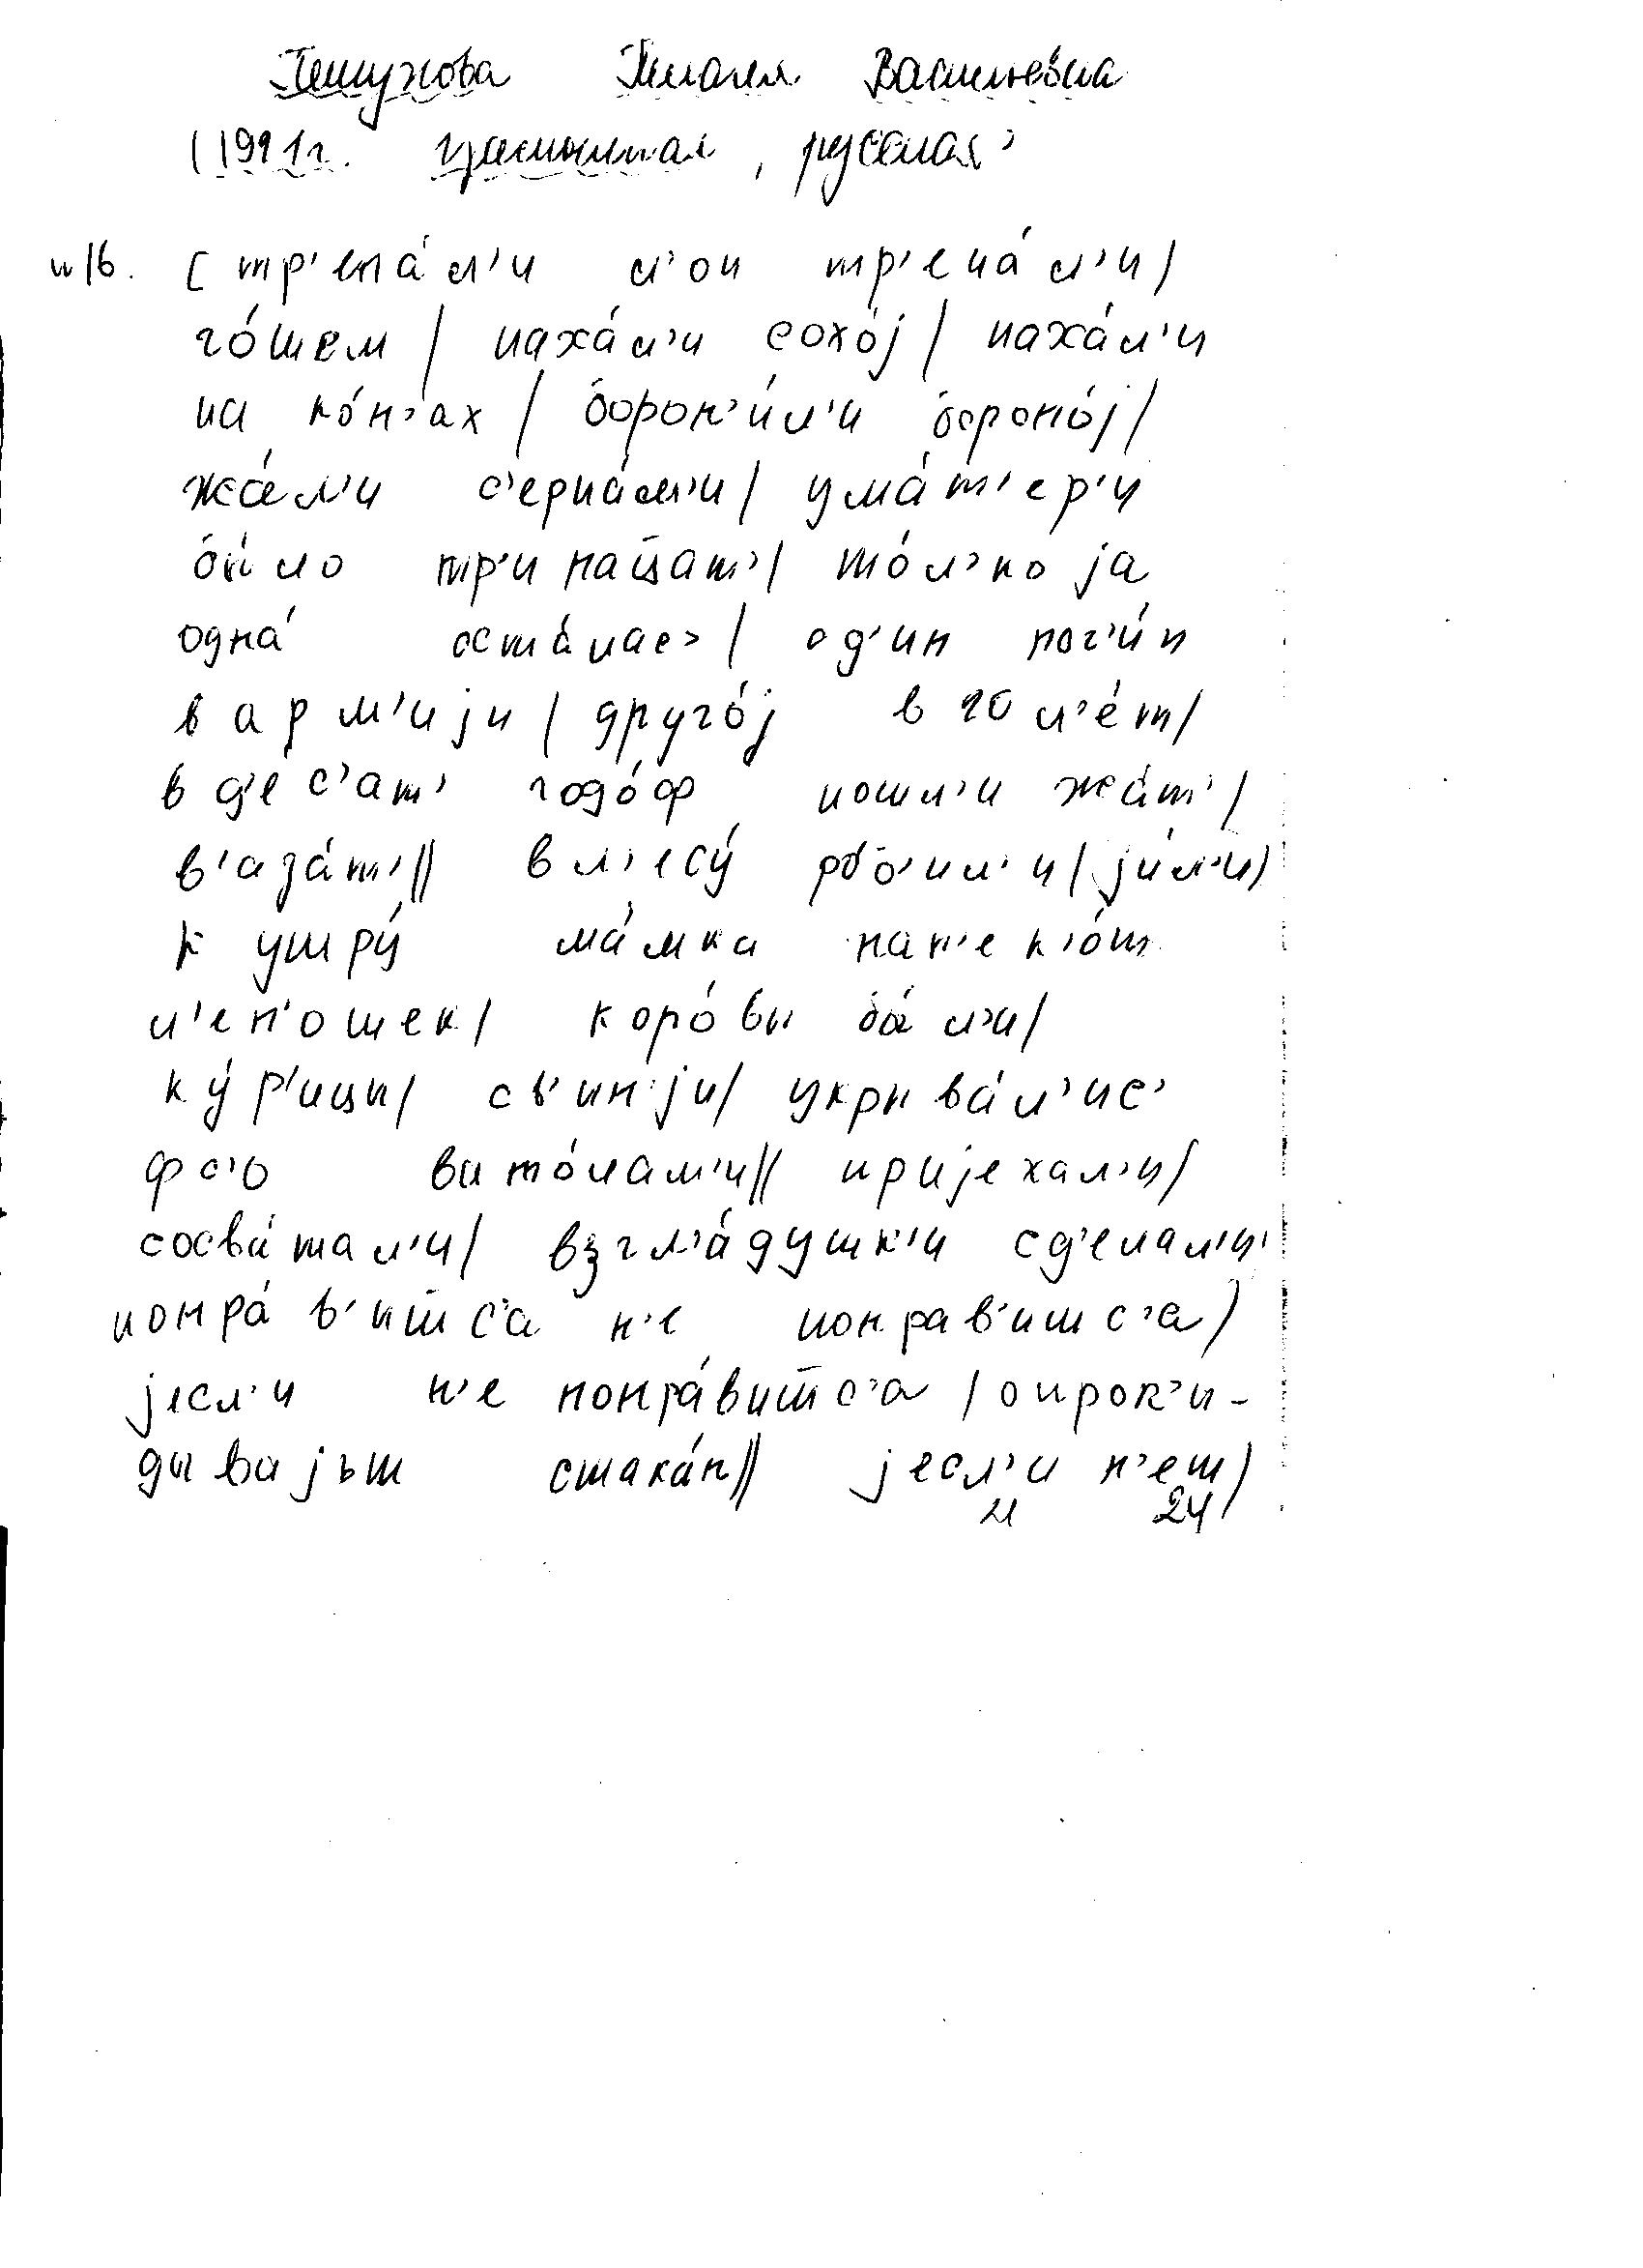 Васильевна
(1991г. , русская
[тр'епа́л'и л'он тр'епа́л'и/
паха́л'и сохо́j/ паха́л'и
на ко́н'ах/ борон'и́л'и бороно́j/
жа́л'и с'ерпа́м'и/ у ма́т'ер'и
бы́ло тр'инацат'/ то́л'ко ја
одна́ оста́лас'/ од'ин пог'и́п
в арм'иjи/ друго́j в 20 л'е́т/
в д'ес'ат' годо́ф пошл'и жа́т'/
в'аза́т'// в л'есу́
к утру́ ма́мка нап'ек'о́т
л'еп'ошек/ коро́вы бы́л'и/
ку́р'ицы/ св'ин'jи/ укрыва́л'ис'
фс'о вито́лам'и// приjехал'и/
сосва́тал'и/ взгл'а́душк'и сд'елал'и
понра́в'итс'а н'е понрав'итс'а/
jесл'и н'е понра́витс'а/ опрок'и-
дываjьт стака́н// jесл'и н'ет/
24